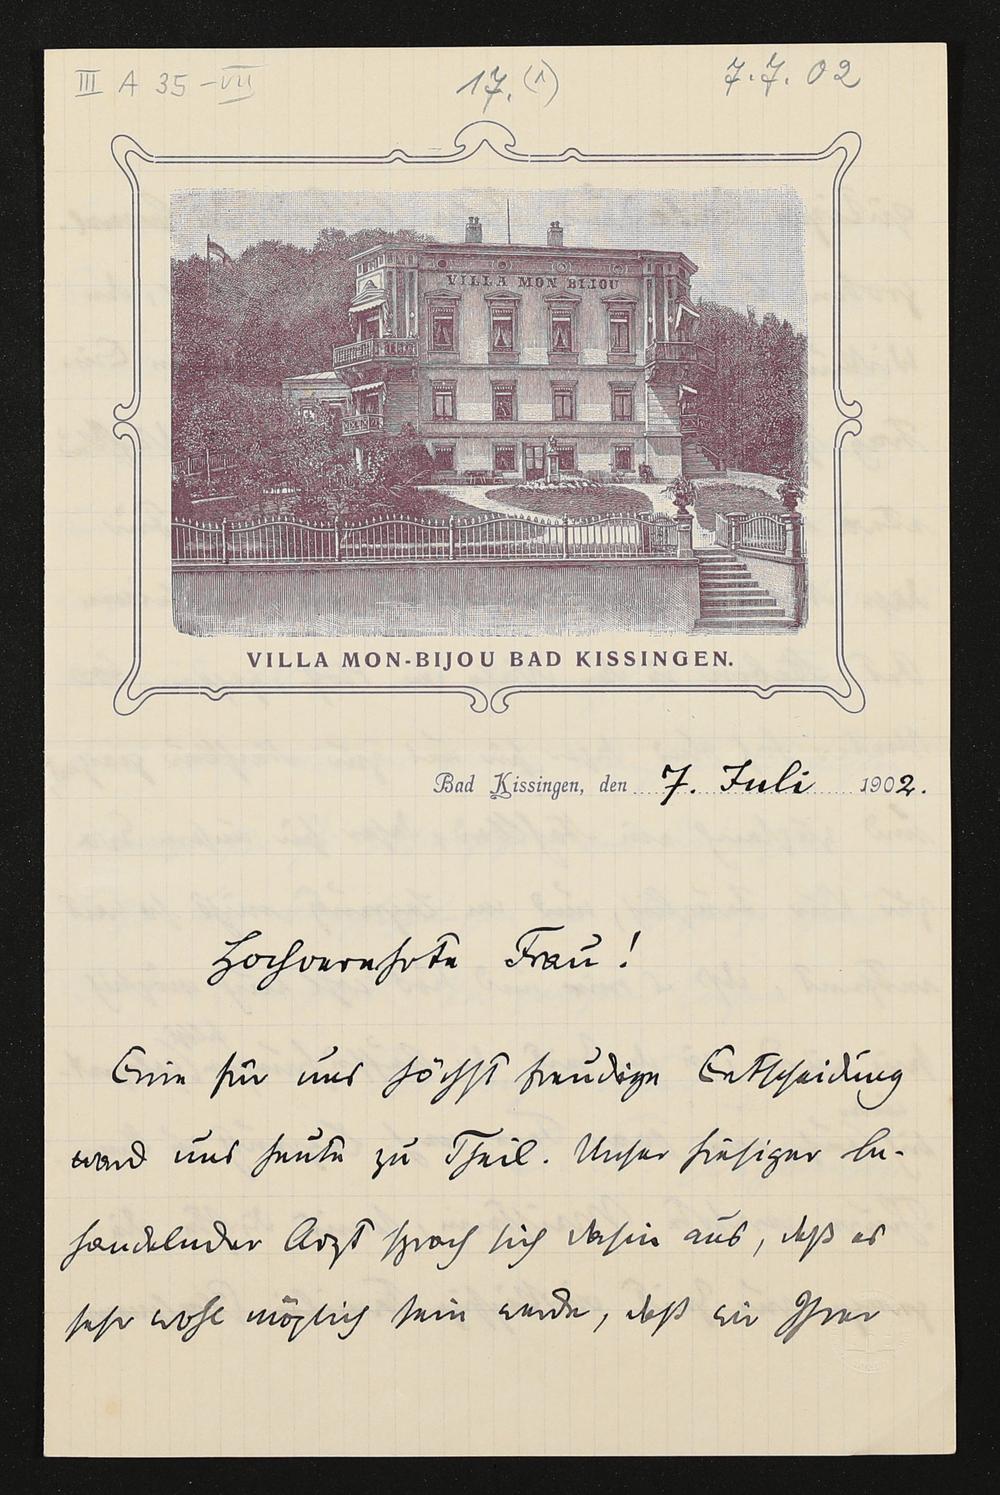 III A 35 - VII
17. (1)
7.7.02
VILLA MON BIJOU
VILLA MON-BIJOU BAD KISSINGEN.
Bad Kissingen, den 7. Juli 1902.
Hochverehrte Frau!
Eine für uns höchst freudige Entscheidung
ward uns heute zu Theil. Unser hiesiger be-
handelnder Arzt sprach sich dahin aus, daß es
sehr wohl möglich sein werde, daß wir Ihrer